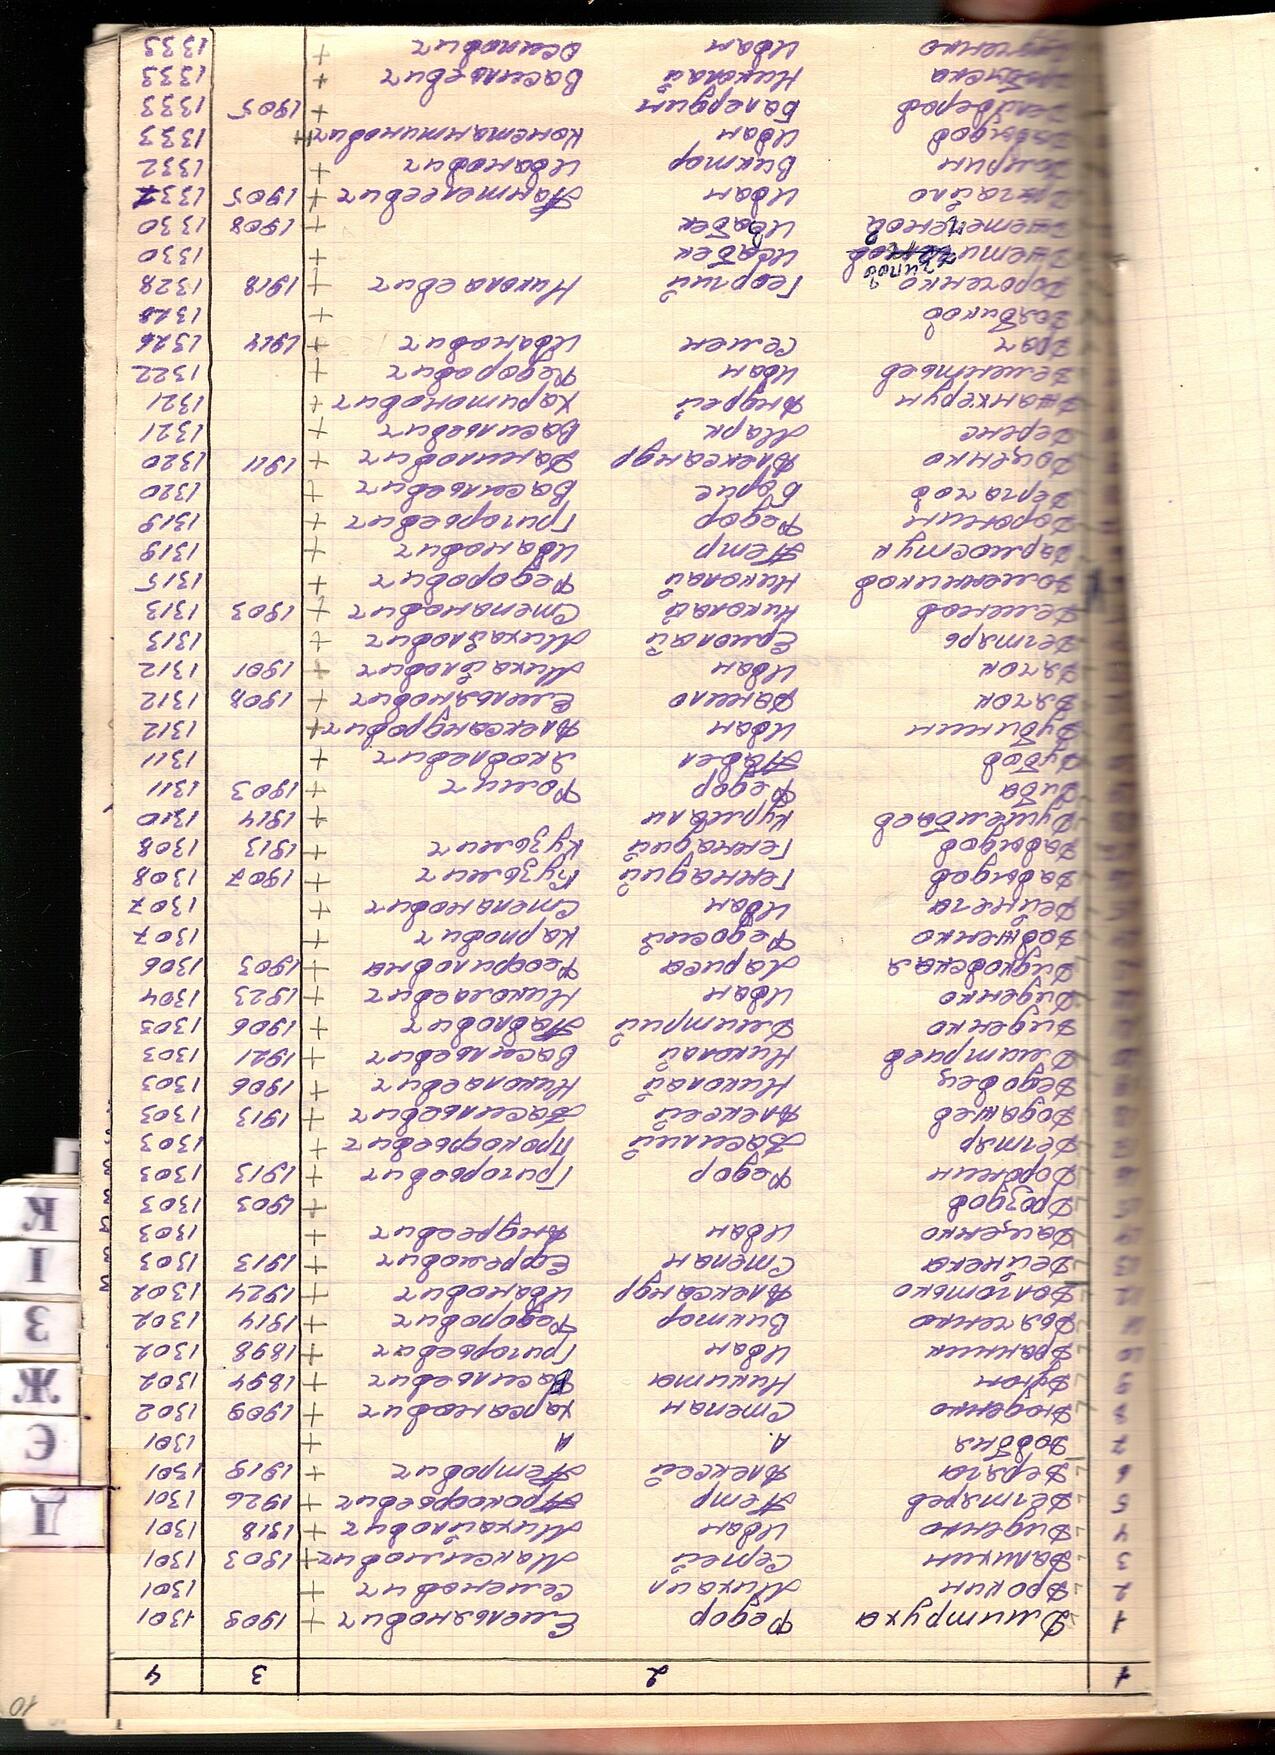 10
1 2 3 4
1 Дмитруха Федор Емельянович + 1909 1301
2 Дрокин Михаил Семенович + 1301
3 Даликин Сергей Максимович + 1903 1301
4 Диденко Иван Михайлович + 1918 1301
5 Дегтярев Петр Прокофьевич + 1926 1301
6 Деряга Алексей Петрович + 1919 1301
7 Довбня А. А +  1301
8 Дюденко Степан Харсанович + 1909 1302
9 Дугон Никита Васильевич + 1894 1302
10 Дранник Иван Григорьевич + 1898 1302
11 Дьяченко Виктор Федорович + 1914 1302
12 Долготько Александр Иванович + 1924 1302
13 Дейнека Степан Ефремович + 1913 1303
14 Даценко Иван Андреевич + 1303
15 Дроздов + 1903 1303
16 Доронин Федор Григорьевич + 1913 1303
17 Дегтяр Василий Прокофьевич + 1303
18 Додашев Алексей Васильевич + 1913 1303
Дедовец Николай Николаевич + 1906 1303
Дмитриев Николай Васильевич + 1921 1303
Диденко Дмитрий Павлович + 1906 1303
Диденко Иван Николаевич + 1923 1304
Дидковская Лариса Феофиловна + 1903 1306
Довженко Федосий Карпович + 1307
Дейнега Иван Степанович + 1307
Давыдов Геннадий Кузьмич + 1907 1308
Давыдов Геннадий Кузьмич + 1913 1308
Душембаев Курмали + 1914 1310
Диба Федор Фомич + 1903 1311
Дубов Павел Яковлевич + 1311
Дубинин Иван Александрович + 1312
Дячок Данило Емельянович + 1908 1312
Дячок Иван Михайлович + 1901 1312
Дегтярь Ермолай Михайлович + 1313
Деменков Николай Степанович + 1903 1313
Доменников Николай Федорович + 1315
Дармостук Петр Иванович + 1319
Доронин Федор Григорьевич + 1319
Дергачов Борис Васильевич + 1320
Доценко Александр Данилович + 1911 1320
Деренс Марк Васильевич + 1321
Джанкерун Андрей Харитонович + 1321
Дементьев Иван Федорович + 1322
Драч Семен Иванович + 1914 1326
Долбиков + 1328
Дороченко Георгий Николаевич + 1918 1328
Джети Исабек + 1330
Джетепенов Исабек + 1908 1330
Иван Пантелеевич + 1905 133
Домрин Виктор Иванович + 1332
Давыдов Иван Константинович + 1333
Балердин + 1905 1333
Николай Васильевич + 1333
Иван Осипович + 1333
Д
Є
Ж
З
І
К